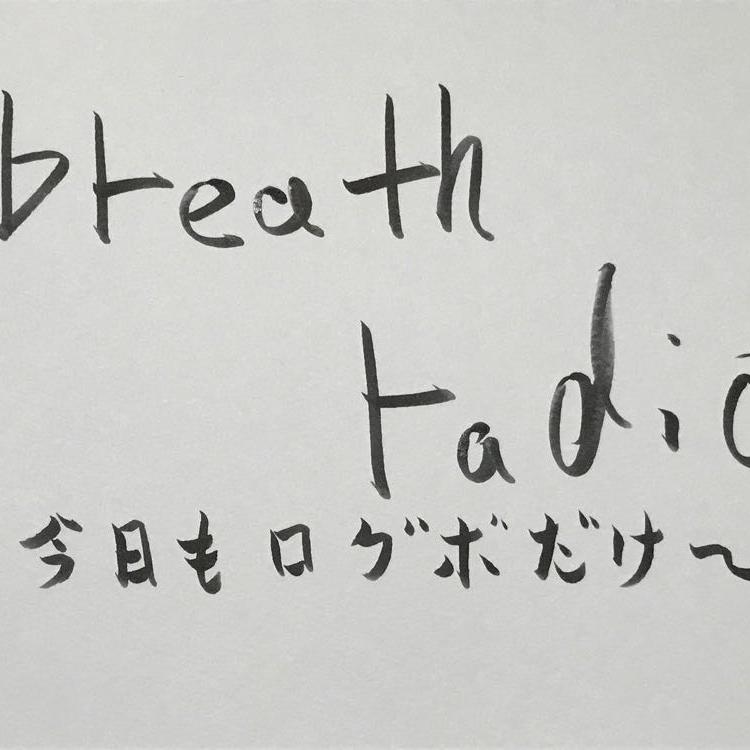 breath
radio
今日もログボだけ〜